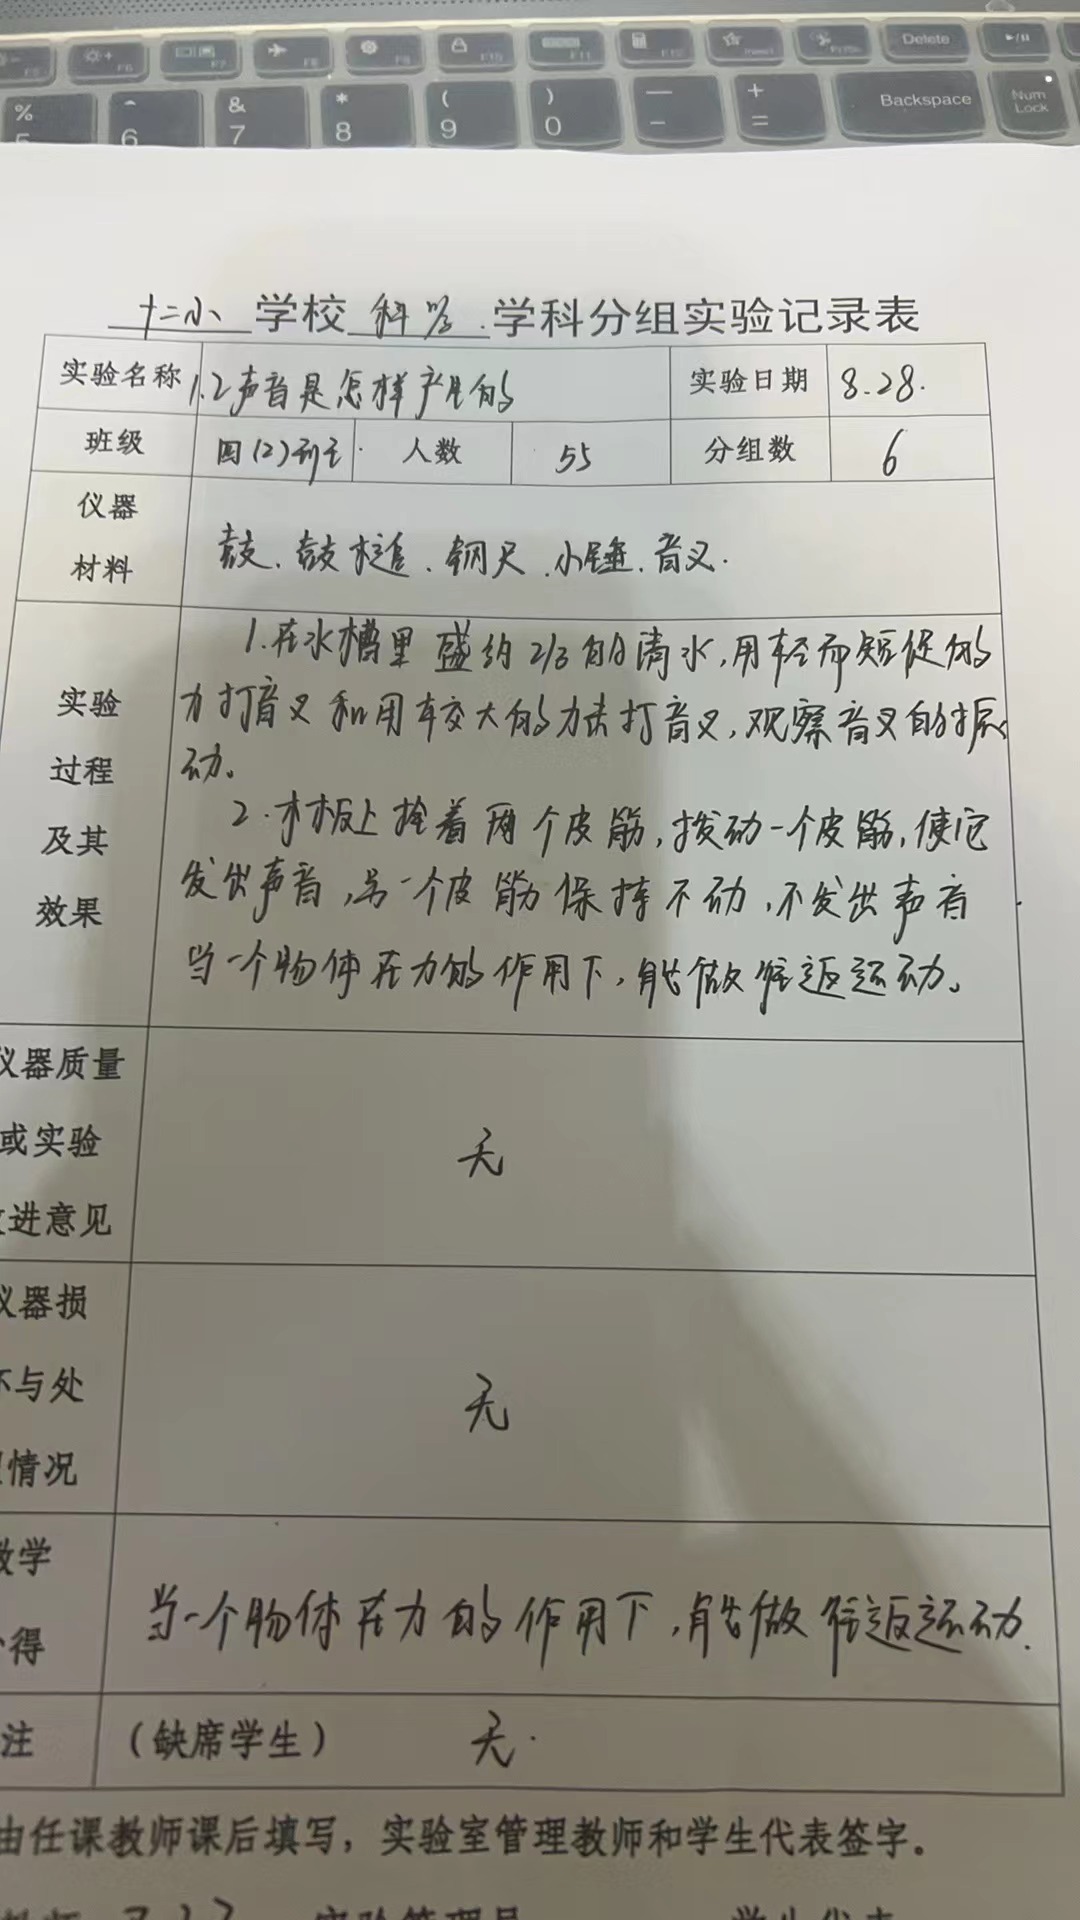 F6
F7
F8
F9
F10
F11
F12
Delete
%
5
^
6
&
7
*
8
(
9
)
0
—
-
+
=
Backspace
Num
Lock
十二小 学校 科学 学科分组实验记录表
实验名称 1.2声音是怎样产生的 实验日期 8.28.
班级 四(2)班 人数 55 分组数 6
仪器
材料
鼓、鼓槌、钢尺、小锤、音叉.
实验
过程
及其
效果
1.在水槽里盛约2/3的清水,用轻而短促的
力打音叉和用较大的力去打音叉,观察音叉的振
动。
2.木板上拴着两个皮筋,拨动一个皮筋,使它
发出声音,另一个皮筋保持不动,不发出声音
当一个物体在力的作用下,能做往返运动。
仪器质量
或实验
进意见
无
仪器损
与处
情况
无
教学
得
当一个物体在力的作用下,能做往返运动.
注 (缺席学生) 无.
由任课教师课后填写，实验室管理教师和学生代表签字。
实验管理员 学生代表